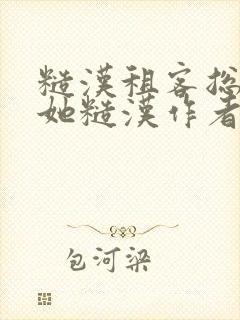 糙漢租客總
她糙漢作者
包河梁